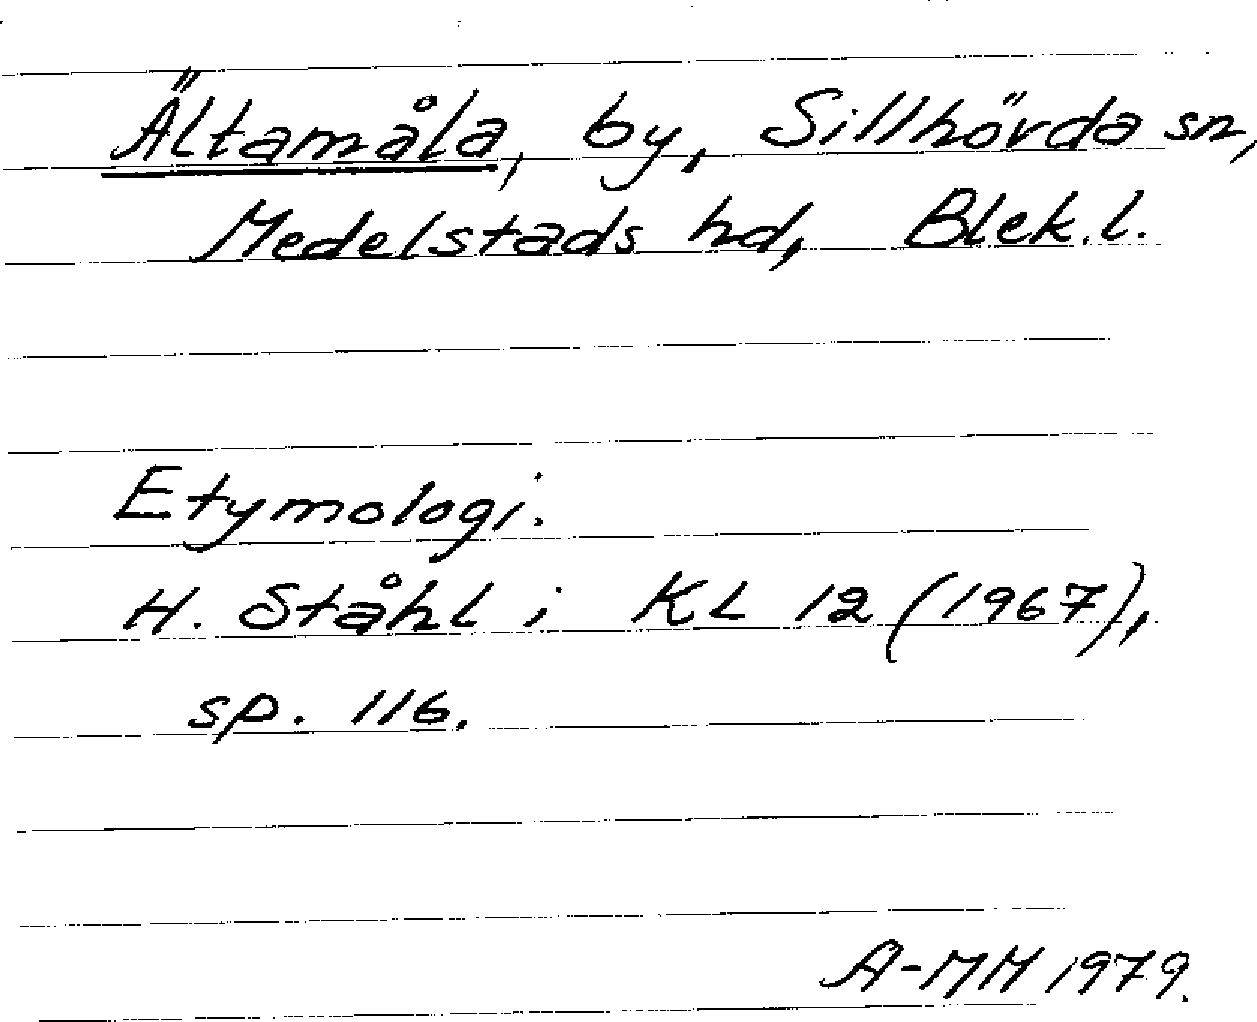 Ältamåla, by, Sillhövda sn,
Medelstads hd, Blek.l.
Etymologi:
H. Ståhl i KL 12 (1967),
sp. 116.
A-MM 1979.